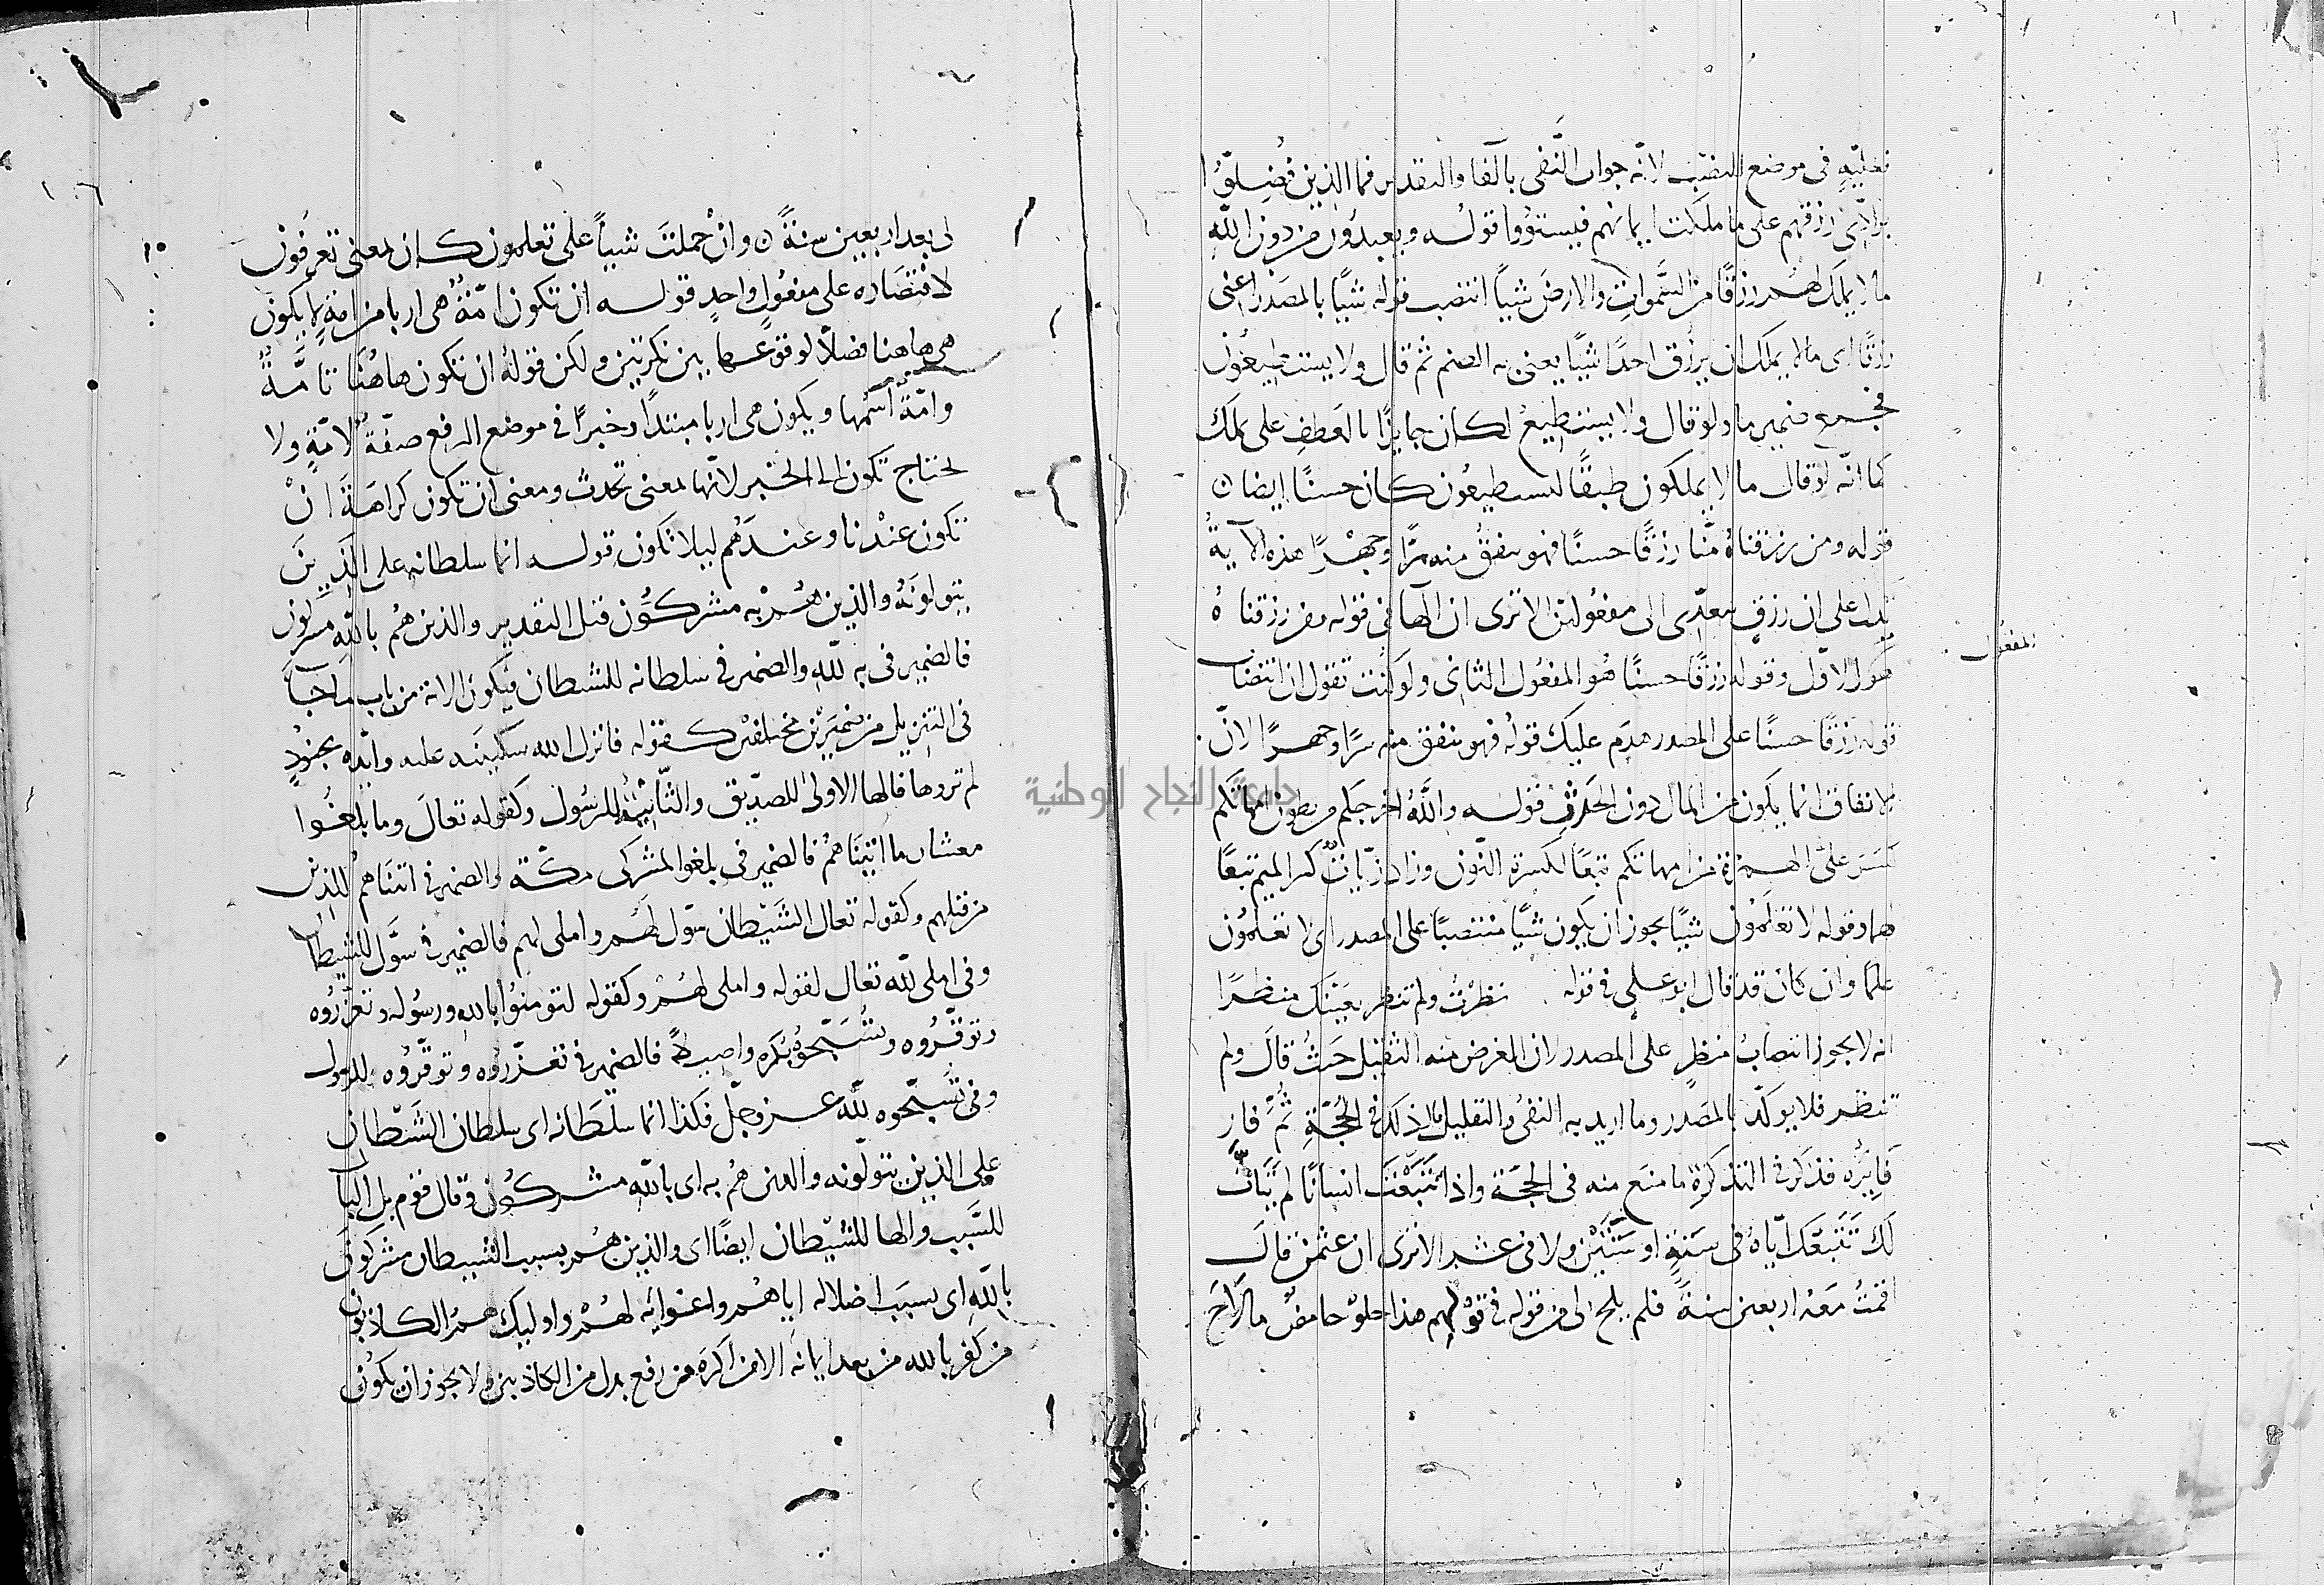 فعليّهٍ في موضع النصب لانّه جواب النّفي بالفا والتقدير فما الذين فُضِّلوُا
برادّي رزقهم على ما ملكت ايمانهم فيستوُوا قوله ويعبدُون من دون الله
ما لا يملك لهم رزقًا من السّموات والارض شيًا انتصب قوله شيًا بالمصدر اعني
رزقًا اي ما لا يملك ان يرزق احدًا شيًا يعني به الصنم ثم قال ولا يستطيعُون
فجمع ضمير ما ولو قال ولا يستطيعُ لكان جايزًا بالعَطفِ على يملك
كما انّه لو قال ما لا يملكون طبقًا ليستطيعُون كان حسنًا ايضا ن
قوله ومن رزقناهُ منّا رزقًا حسنًا فهو ينفقُ منه سرًّا وجهْرًا هذه الآيةُ
تدل على ان رزق يتعدّى الى مفعُولين الا ترى ان الها في قوله من رزقناهُ
المفعُول
هو الاوّل وقوله رزقًا حسنًا هُو المفعُول الثاني ولو كنت تقول ان انتصاب
قوله رزقًا حسنًا على المصدر هدَم عليك قولُه فهو ينفق منه سرًا وجهرًا لانّ
الانفاق انما يكون من المال دون الحدَثِ قوله واللهُ اخرجكم من بطون امهاتكم
كسَر علىٌّ الهمزة من امهاتكم تبعًا لكسرة النّون وزاد زيّات كسر الميم تبعًا
لها وقوله لا تعلَمُون شيًا يجوز ان يكون شيًا منتصبًا على المصدر اي لا تعلمُون
علمًا وان كان قد قال ابو علي في قوله نظرْتَ ولم تنظر بعَينك منظرًا
انه لا يجوز انتصابُ منظرٍ على المصدر لان الغرض منه التقليل حَيثُ قالَ ولم
تنظر فلا يوكدّ بالمصَدر وما اريد به النفيُ والتقليل قال ذلك في الحُجّةِ ثُمَّ
فذكر في التذكرة ما منَع منه في الحجَة واذا تتبَّعْتَ انسانًا لم يتَأتَّ
لك تَتَبّعَك ايّاهُ في سَنةٍ او سَنتَيْن ولا في عشر الا ترى ان عثمٰن قالَ
اقمتُ معَه اربعين سنةً فلم يلح لي من قوله في قوْلهم هذا حلوٌ حامضٌ ما لَاحَ
لي بعد اربعين سنةً ن وانْ حملتَ شيئاً على تعلمون كان بمعنى تعرفون
لاقتصَاره على مفعُولٍ واحدٍ قوله ان تكون امّةٌ هي اربا من امةٍ لا يكون
هي هاهنا فضلاً لوقوعها بين نكرتين ولكن قولُه ان تكون هاهُنا تامَّةٌ
وامّةٌ اسمُها ويكون هي اربا مبتدًا وخبرًا في موضع الرفع صفةً لامّةٍ ولا
تحتاج تكون الى الخبر لانّها بمعنى تحَدث ومعنى ان تكون كراهَةَ انْ
تكون عنْدنا وعندَهُم ليلا تكون قوله انما سلطانه على الّذينَ
يتولونَهُ والذين هُم بْه مشركُون قيل التقدير والذين هُم باللهِ مشركون
فالضمير في به للّهِ والضمير في سلطانه للشيطان فيكون الآية من باب ما جآ
في التنزيل من ضميرَيْن مختلفيْن كقوله فانزل الله سكينَته عليه وايّده بجنُودٍ
لم تروها فالها الاولى للصدّيق والثّانيَةُ للرسُول وكقوله تعالَى وما بلغُوا
معشار ما اتينَاهُم فالضمير في بلغوا لمشركي مكّة والضمير في اتينَاهُم للذين
من قبلهم وكقوله تعالى الشَّيْطان سَوّل لَهُم واملى لهم فالضمير في سوَّل للشيطان
وفي املى للّه تعالى لقوله واملى لهُمْ وكقوله لتومنُوا بالله ورسُوله وتعزّرُوه
وتوقّرُوه وتُسَبِّحوُهُ بُكرةً واصيلًا فالضمير في تعزّروُه وتوقّرُوه للرسُول
وفي تُسبّحوه للّه عزّ وجلّ فكذا انما سلْطَانه اي سلطان الشَّيْطان
على الذين يتولّونه والذين هُم به اي بالله مشركُون وقال قوم بل البآ
للسَّبب والها للشيْطان ايضًا اي والذين هُم بسبب الشيطان مشركونَ
باللّهِ اي بسبَب اضلاله اياهُم واغوائه لهُمْ واوليك همُ الكاذبون
من كفر بالله من بعد ايمانه الا من اكره من رفع بدل من الكاذبين ولا يجوز ان يكُون
جامعة النجاح الوطنية